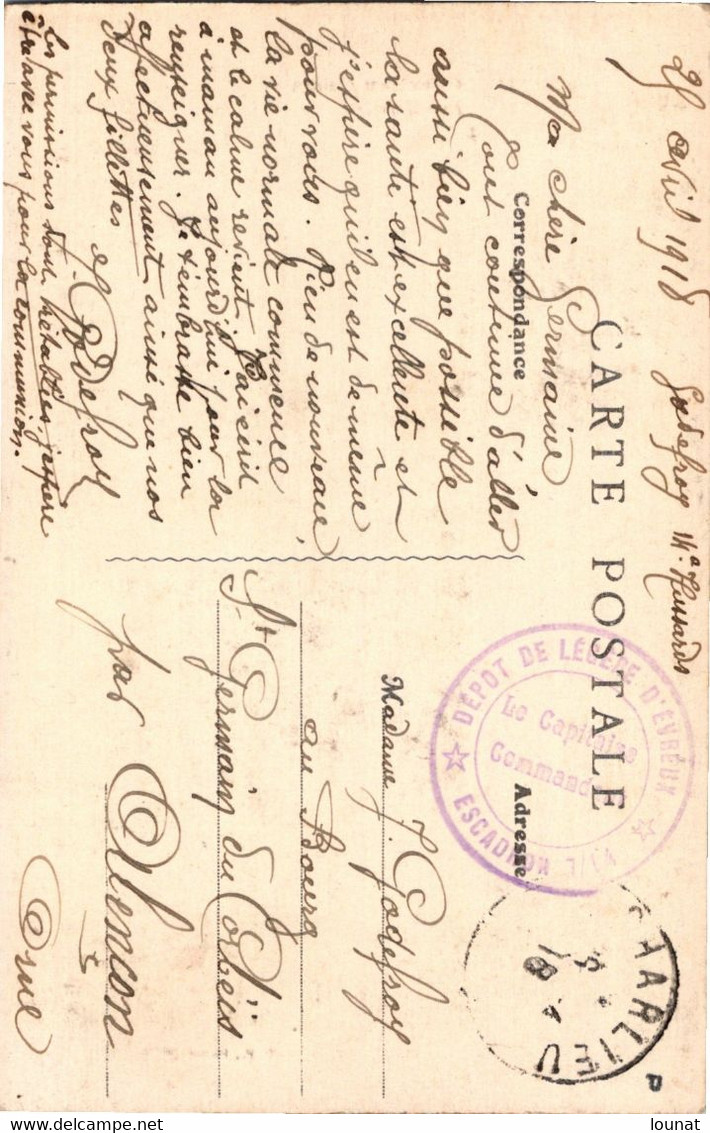 25 avril 1918 Godefroy 14e Hussards
CARTE POSTALE
Correspondance
Adresse
Ma chère Germaine
Tout continue d'aller
aussi bien que possible
la santé est excellente et
j'espère qu'il en est de même
pour vous. Rien de nouveau,
la vie normale commence
et le calme revient. J'ai écrit
à maman aujourd'hui pour la
renseigner. Je t'embrasse bien
affectueusement ainsi que nos
deux fillettes
J. Godefroy
Les permissions sont rétablies, j'espère
être avec vous pour la communion.
DÉPOT DE LÉGÈRE D'ÉVREUX
Le Capitaine
Command
ESCADRON
CHARLIEU
Madame J. Godefroy
au Bourg
St Germain du Corbéïs
par Alençon
Orne
lounat